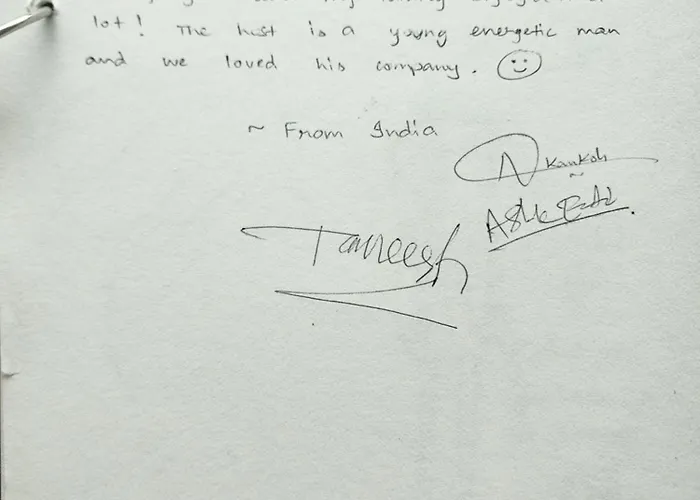 lot! The host is a young energetic man
and we loved his company. ☺
~ From India
Tavreesh